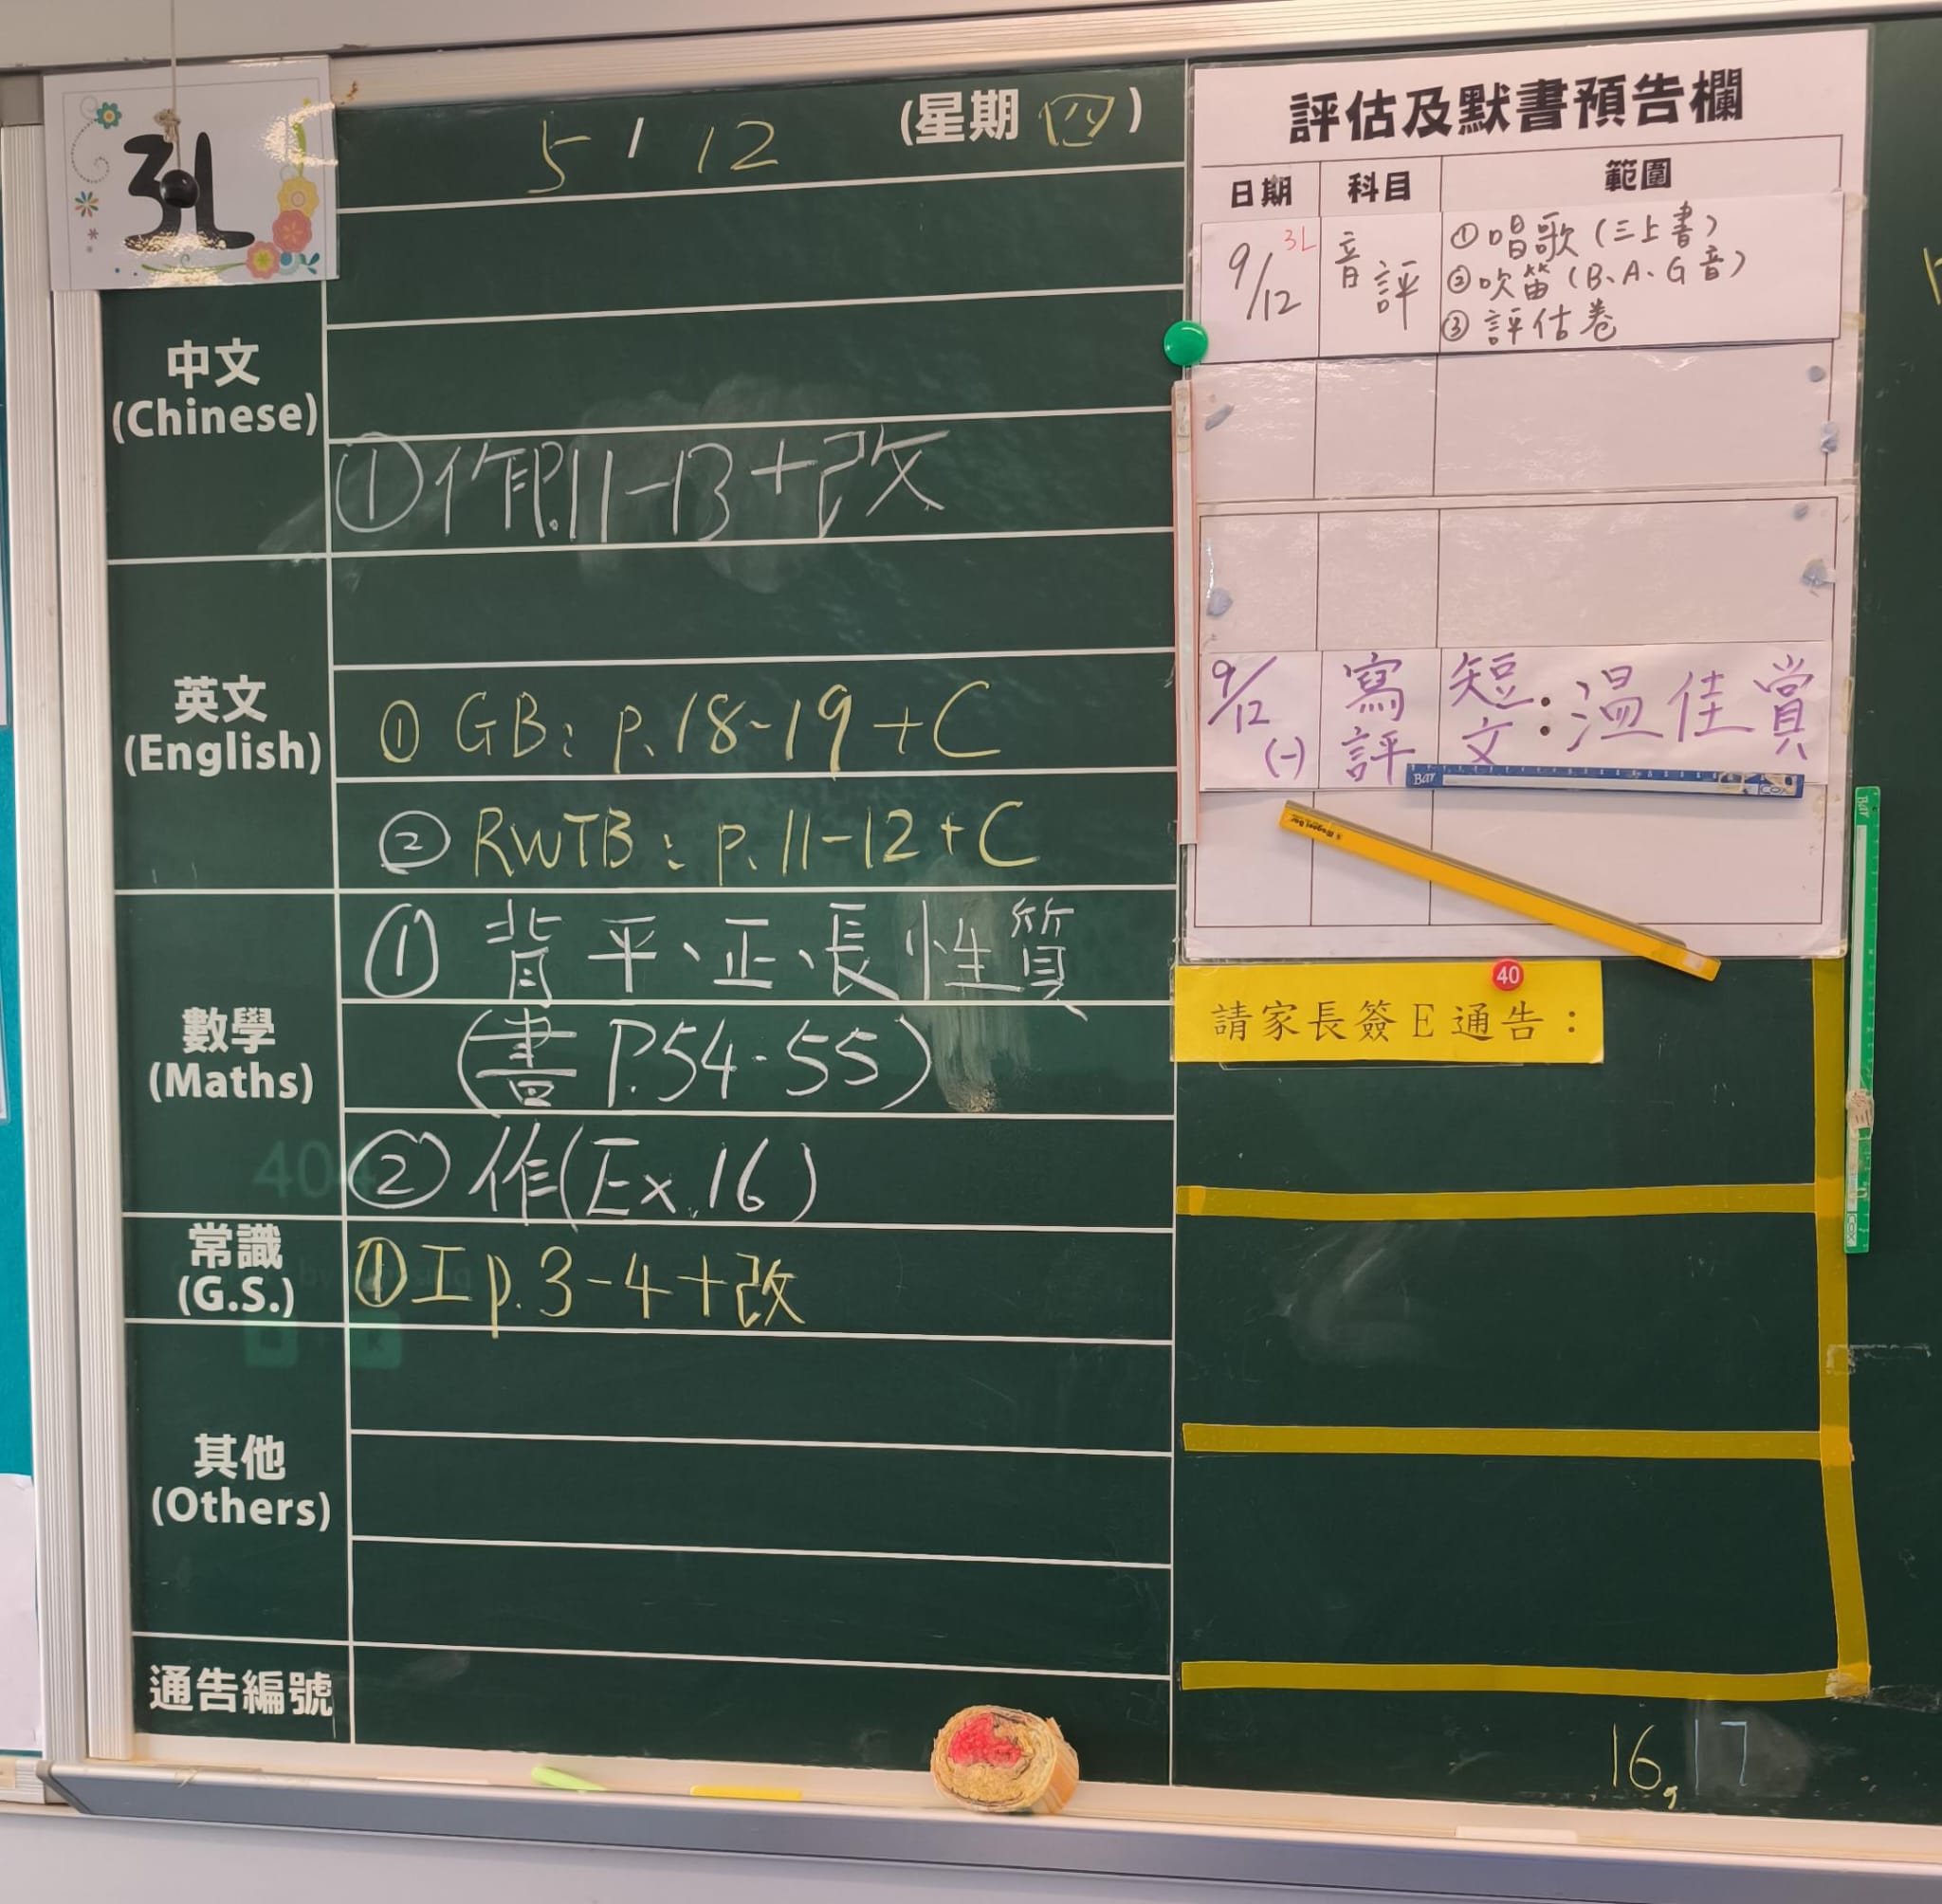 3L
5 / 12 (星期 四)
中文
(Chinese)
①作P.11-13+改
英文
(English)
① GB: p.18-19 + C
② RWTB: p.11-12 + C
數學
(Maths)
① 背平、正、長性質
(書 P.54-55)
② 作(Ex.16)
常識
(G.S.)
①工 p.3-4+改
其他
(Others)
通告編號
評估及默書預告欄
日期 科目 範圍
9/12 3L 音評 ①唱歌(三上書)
②吹笛(B、A、G音)
③評估卷
9/12 (一) 寫評 短文:溫佳賞
Bar
40
請家長簽E通告:
16, 17